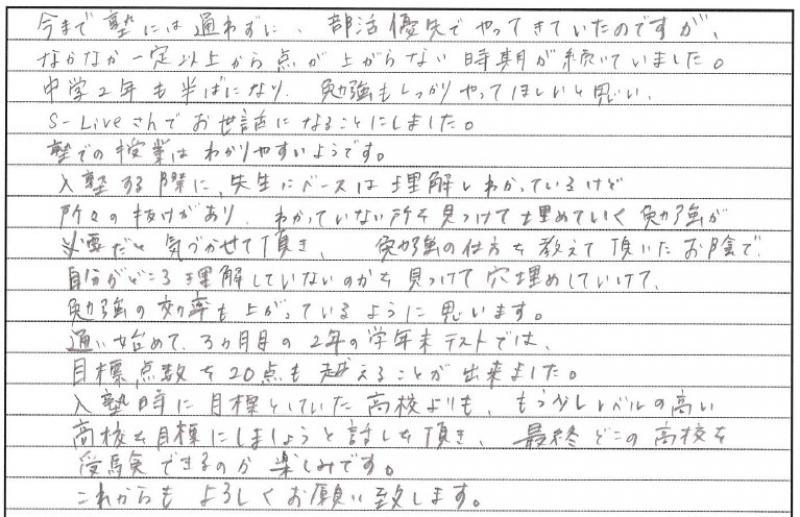 今まで塾には通わずに、部活優先でやってきていたのですが、
なかなか一定以上から点が上がらない時期が続いていました。
中学2年も半ばになり、勉強もしっかりやってほしいと思い、
S-Liveさんでお世話になることにしました。
塾での授業はわかりやすいようです。
入塾する際に、先生にベースは理解しわかっているけど
所々の抜けがあり、わかっていない所を見つけて埋めていく勉強が
必要だと気づかせて頂き、勉強の仕方を教えて頂いたお陰で、
自分がどころ理解していないのかを見つけて穴埋めしていけて、
勉強の効率も上がっているように思います。
通い始めて、3ヵ月目の2年の学年末テストでは、
目標点数を20点も越えることが出来ました。
入塾時に目標としていた高校よりも、もう少しレベルの高い
高校を目標にしましょうと話しを頂き、最終どこの高校を
受験できるのか楽しみです。
これからもよろしくお願い致します。